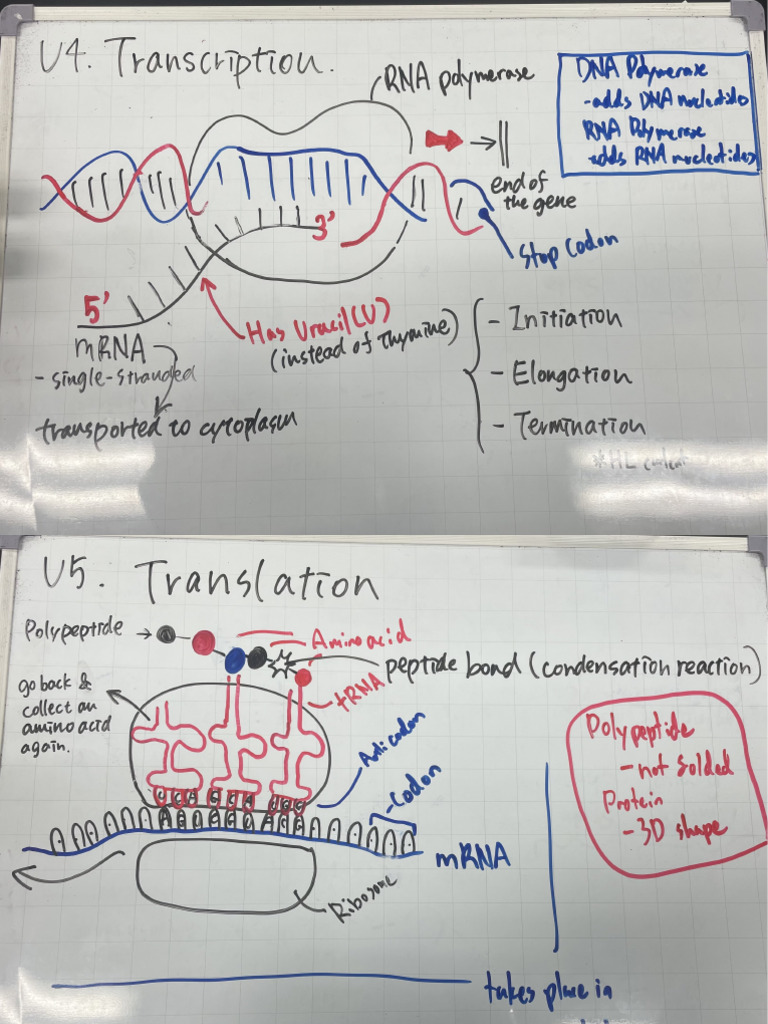 U4. Transcription.
RNA polymerase
DNA Polymerase
-adds DNA nucleotides
RNA Polymerase
adds RNA nucleotides
end of
the gene
Stop Codon
3'
5'
mRNA
- single-stranded
transported to cytoplasm
Has Uracil(U)
(instead of Thymine)
- Initiation
- Elongation
- Termination
*HL content
U5. Translation
Polypeptide
Amino acid
peptide bond (condensation reaction)
tRNA
go back &
collect an
amino acid
again.
Anticodon
-Codon
mRNA
Ribosome
Polypeptide
- not solded
Protein
- 3D shape
takes place in